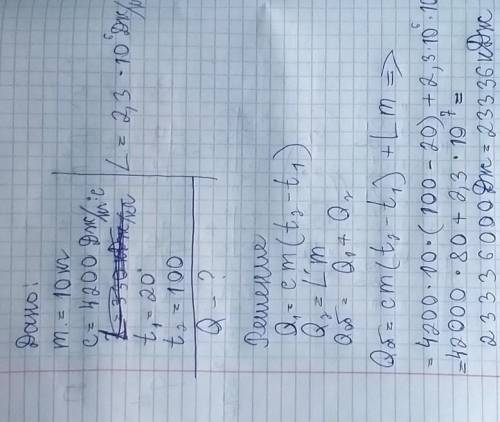 Дано:
m = 10 кг
c = 4200 Дж/кг°c
L = 2,3 · 10⁶ Дж/
t₁ = 20°
t₂ = 100
Q - ?
Решение
Q₁ = cm(t₂ - t₁)
Q₂ = L m
Qоб = Q₁ + Q₂
Qоб = cm(t₂ - t₁) + L m =>
= 4200 · 10 · (100 - 20) + 2,3 · 10⁶ · 10
= 42000 · 80 + 2,3 · 10⁷ =
2 3 3 3 6 0 0 0 Дж = 2 3 3 3 6 кДж